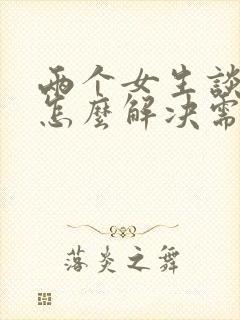 两个女生談
怎麼解决需
落炎之舞